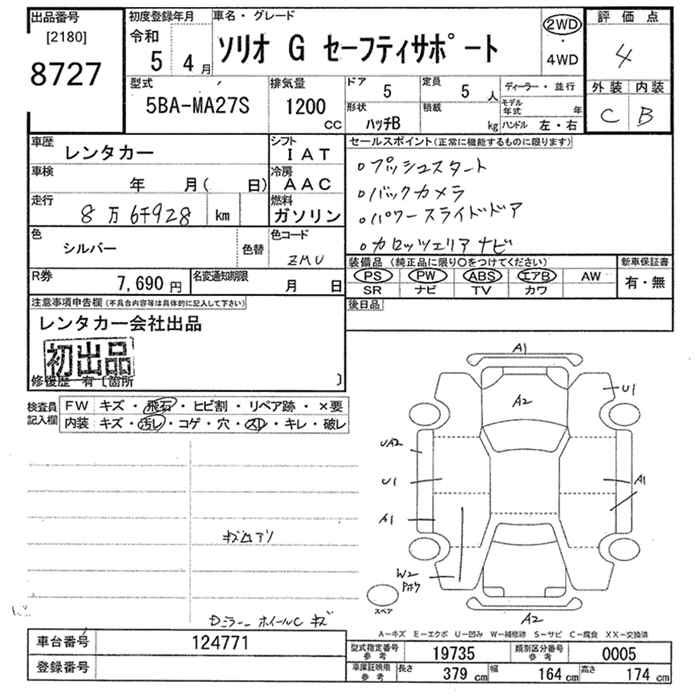 出品番号
[2180]
8727
初度登録年月
令和
5 4月
車名・グレード
ソリオ G セーフティサポート
2WD
・
4WD
評価点
4
外装 内装
C B
型式
5BA-MA27S
排気量
1200
CC
ドア
5
定員
5 人
形状
ハッチB
積載
kg
ディーラー・並行
モデル年式 年
ハンドル 左・右
車歴
レンタカー
シフト
IAT
車検
年 月( 日)
冷房
AAC
走行
8万6千928 km
燃料
ガソリン
色
シルバー
色替
色コード
ZMU
R券
7,690円
名変通知期限
月 日
セールスポイント(正常に機能するものに限ります)
○プッシュスタート
○バックカメラ
○パワースライドドア
○カロッツェリアナビ
装備品(純正品に限り○をつけてください)
PS PW ABS エアB AW
SR ナビ TV カワ
新車保証書
有・無
後日品
注意事項申告欄(不具合内容等は具体的に記入して下さい)
レンタカー会社出品
初出品
修復歴 有〔箇所 〕
検査員記入欄
FW キズ・飛石・ヒビ割・リペア跡・×要
内装 キズ・汚レ・コゲ・穴・スレ・キレ・破レ
キズムアリ
Dミラー ホイールC キズ
A1
A2
U1
UA2
U1
A1
A1
W2
スペア
A2
A-キズ E-エクボ U-凹み W-補修跡 S-サビ C-腐食 XX-交換済
車台番号
124771
登録番号
型式指定番号 参考
19735
類別区分番号 参考
0005
車庫証明用 参考
長さ 379 cm 幅 164 cm 高さ 174 cm